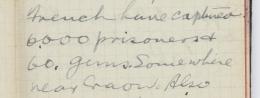 French have captured
6.000 prisoners &
60. guns. Somewhere
near Craow. Also